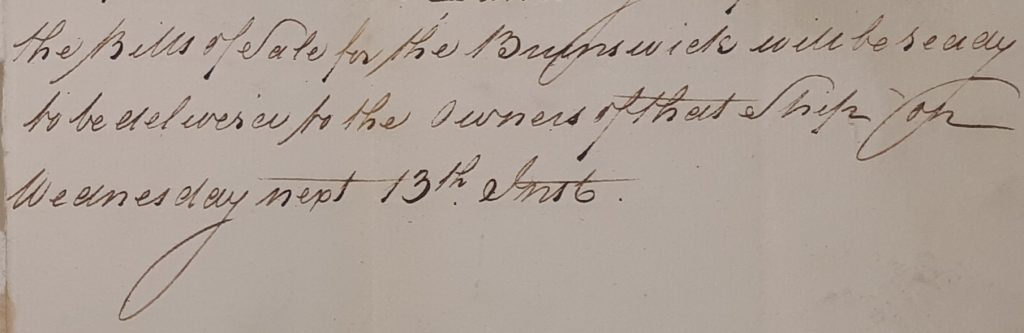 the Bills of Sale for the Brunswick will be ready
to be deliver'd to the Owners of that Ship on
Wednesday next 13th. Inst.